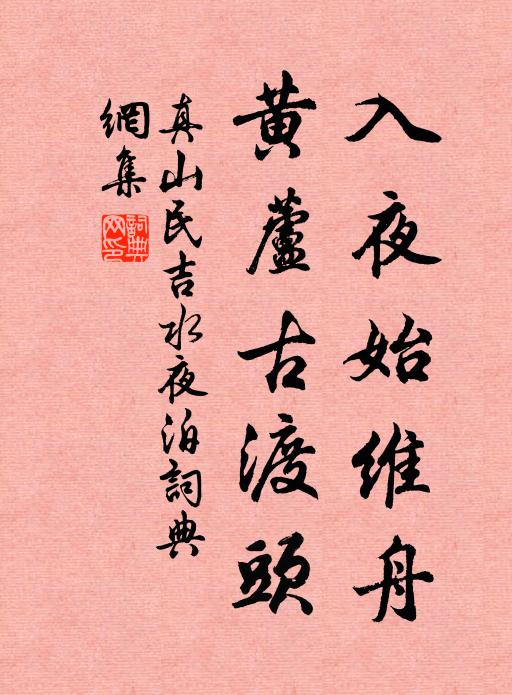 入夜始维舟
黄蘆古渡頭
真山民吉水夜泊詞典
網集
詞典网印